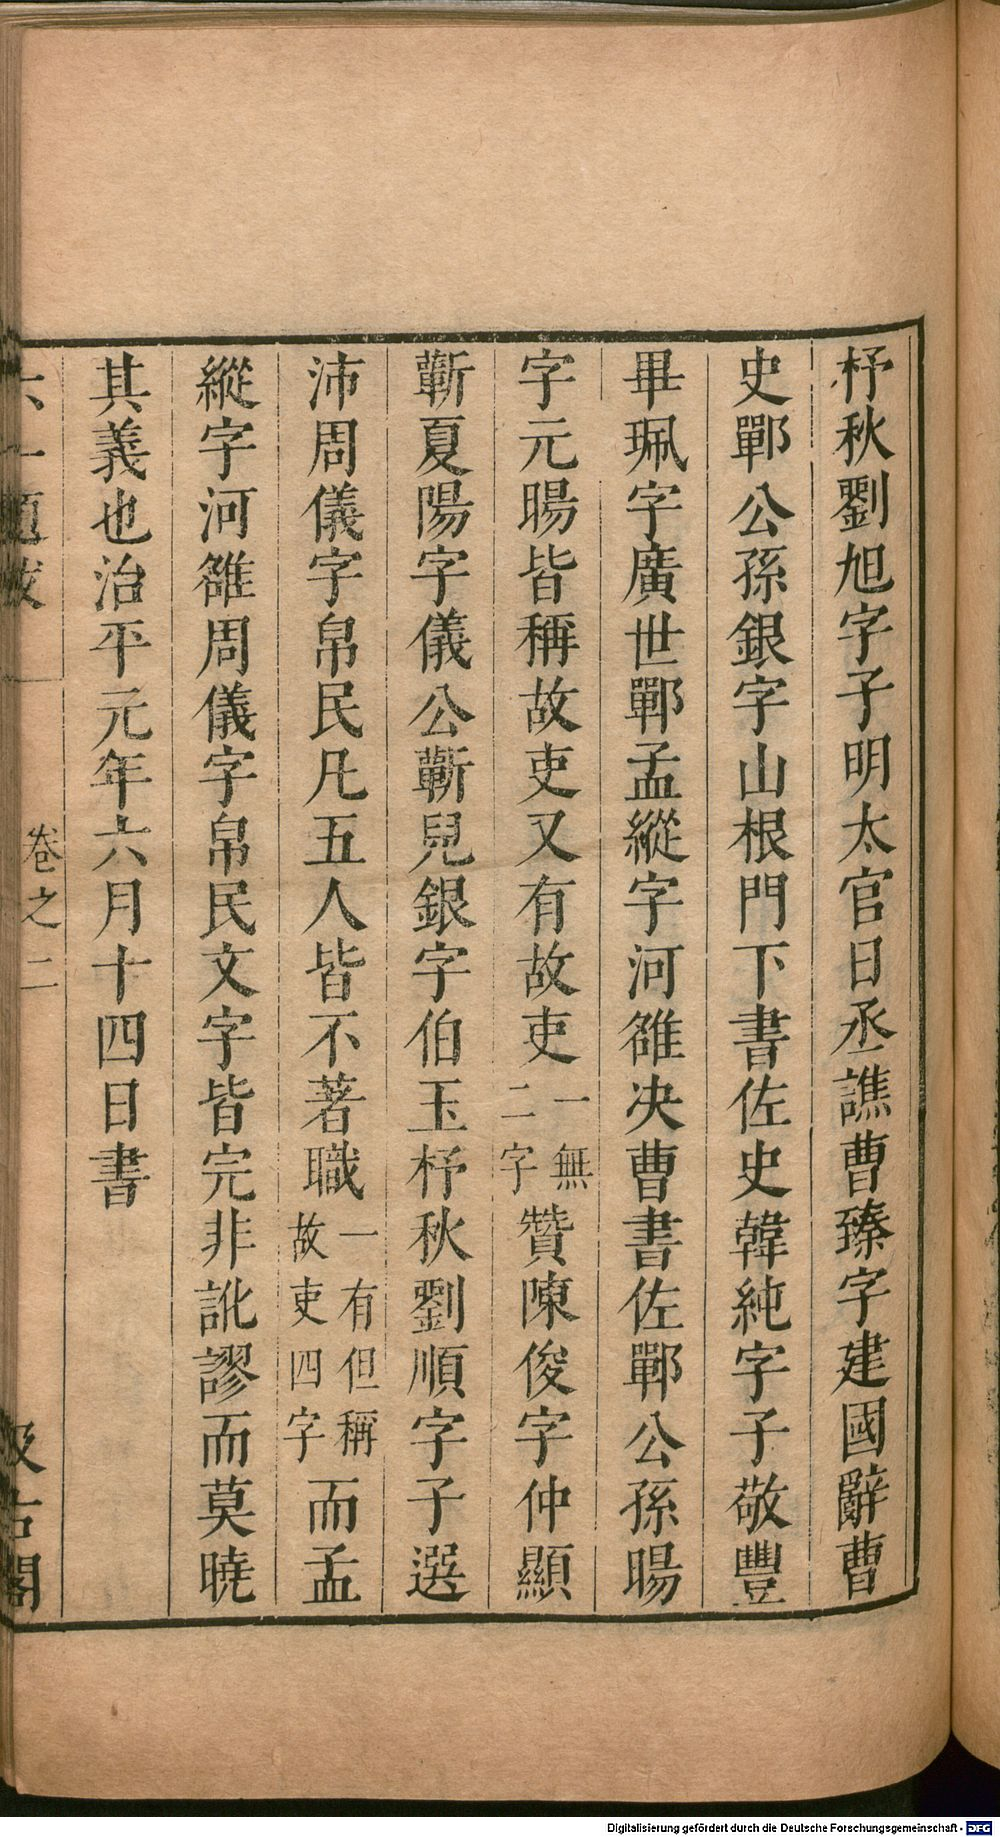 杼秋劉旭字子明太官日丞譙曹臻字建國辭曹
史鄲公孫銀字山根門下書佐史韓純字子敬豐
畢珮字廣世鄲孟縱字河雒决曹書佐鄲公孫暘
字元暘皆稱故吏又有故吏一無二字贊陳俊字仲顯
蘄夏陽字儀公蘄兒銀字伯玉杼秋劉順字子選
沛周儀字帛民凡五人皆不著職一有但稱故吏四字而孟
縱字河雒周儀字帛民文字皆完非訛謬而莫曉
其義也治平元年六月十四日書
六一題跋 卷之二 汲古閣
Digitalisierung gefördert durch die Deutsche Forschungsgemeinschaft - DFG